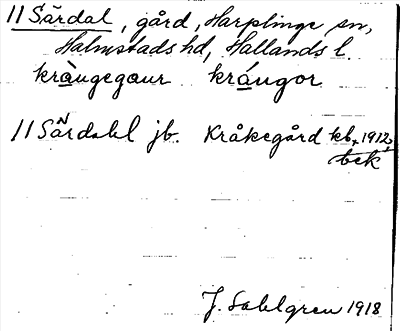 11 Särdal, gård, Harplinge sn,
Halmstads hd, Hallands l.
kràngegaur krángor
11 Särdahl jb. Kråkegård kb, 1912,
bek
J. Sahlgren 1918